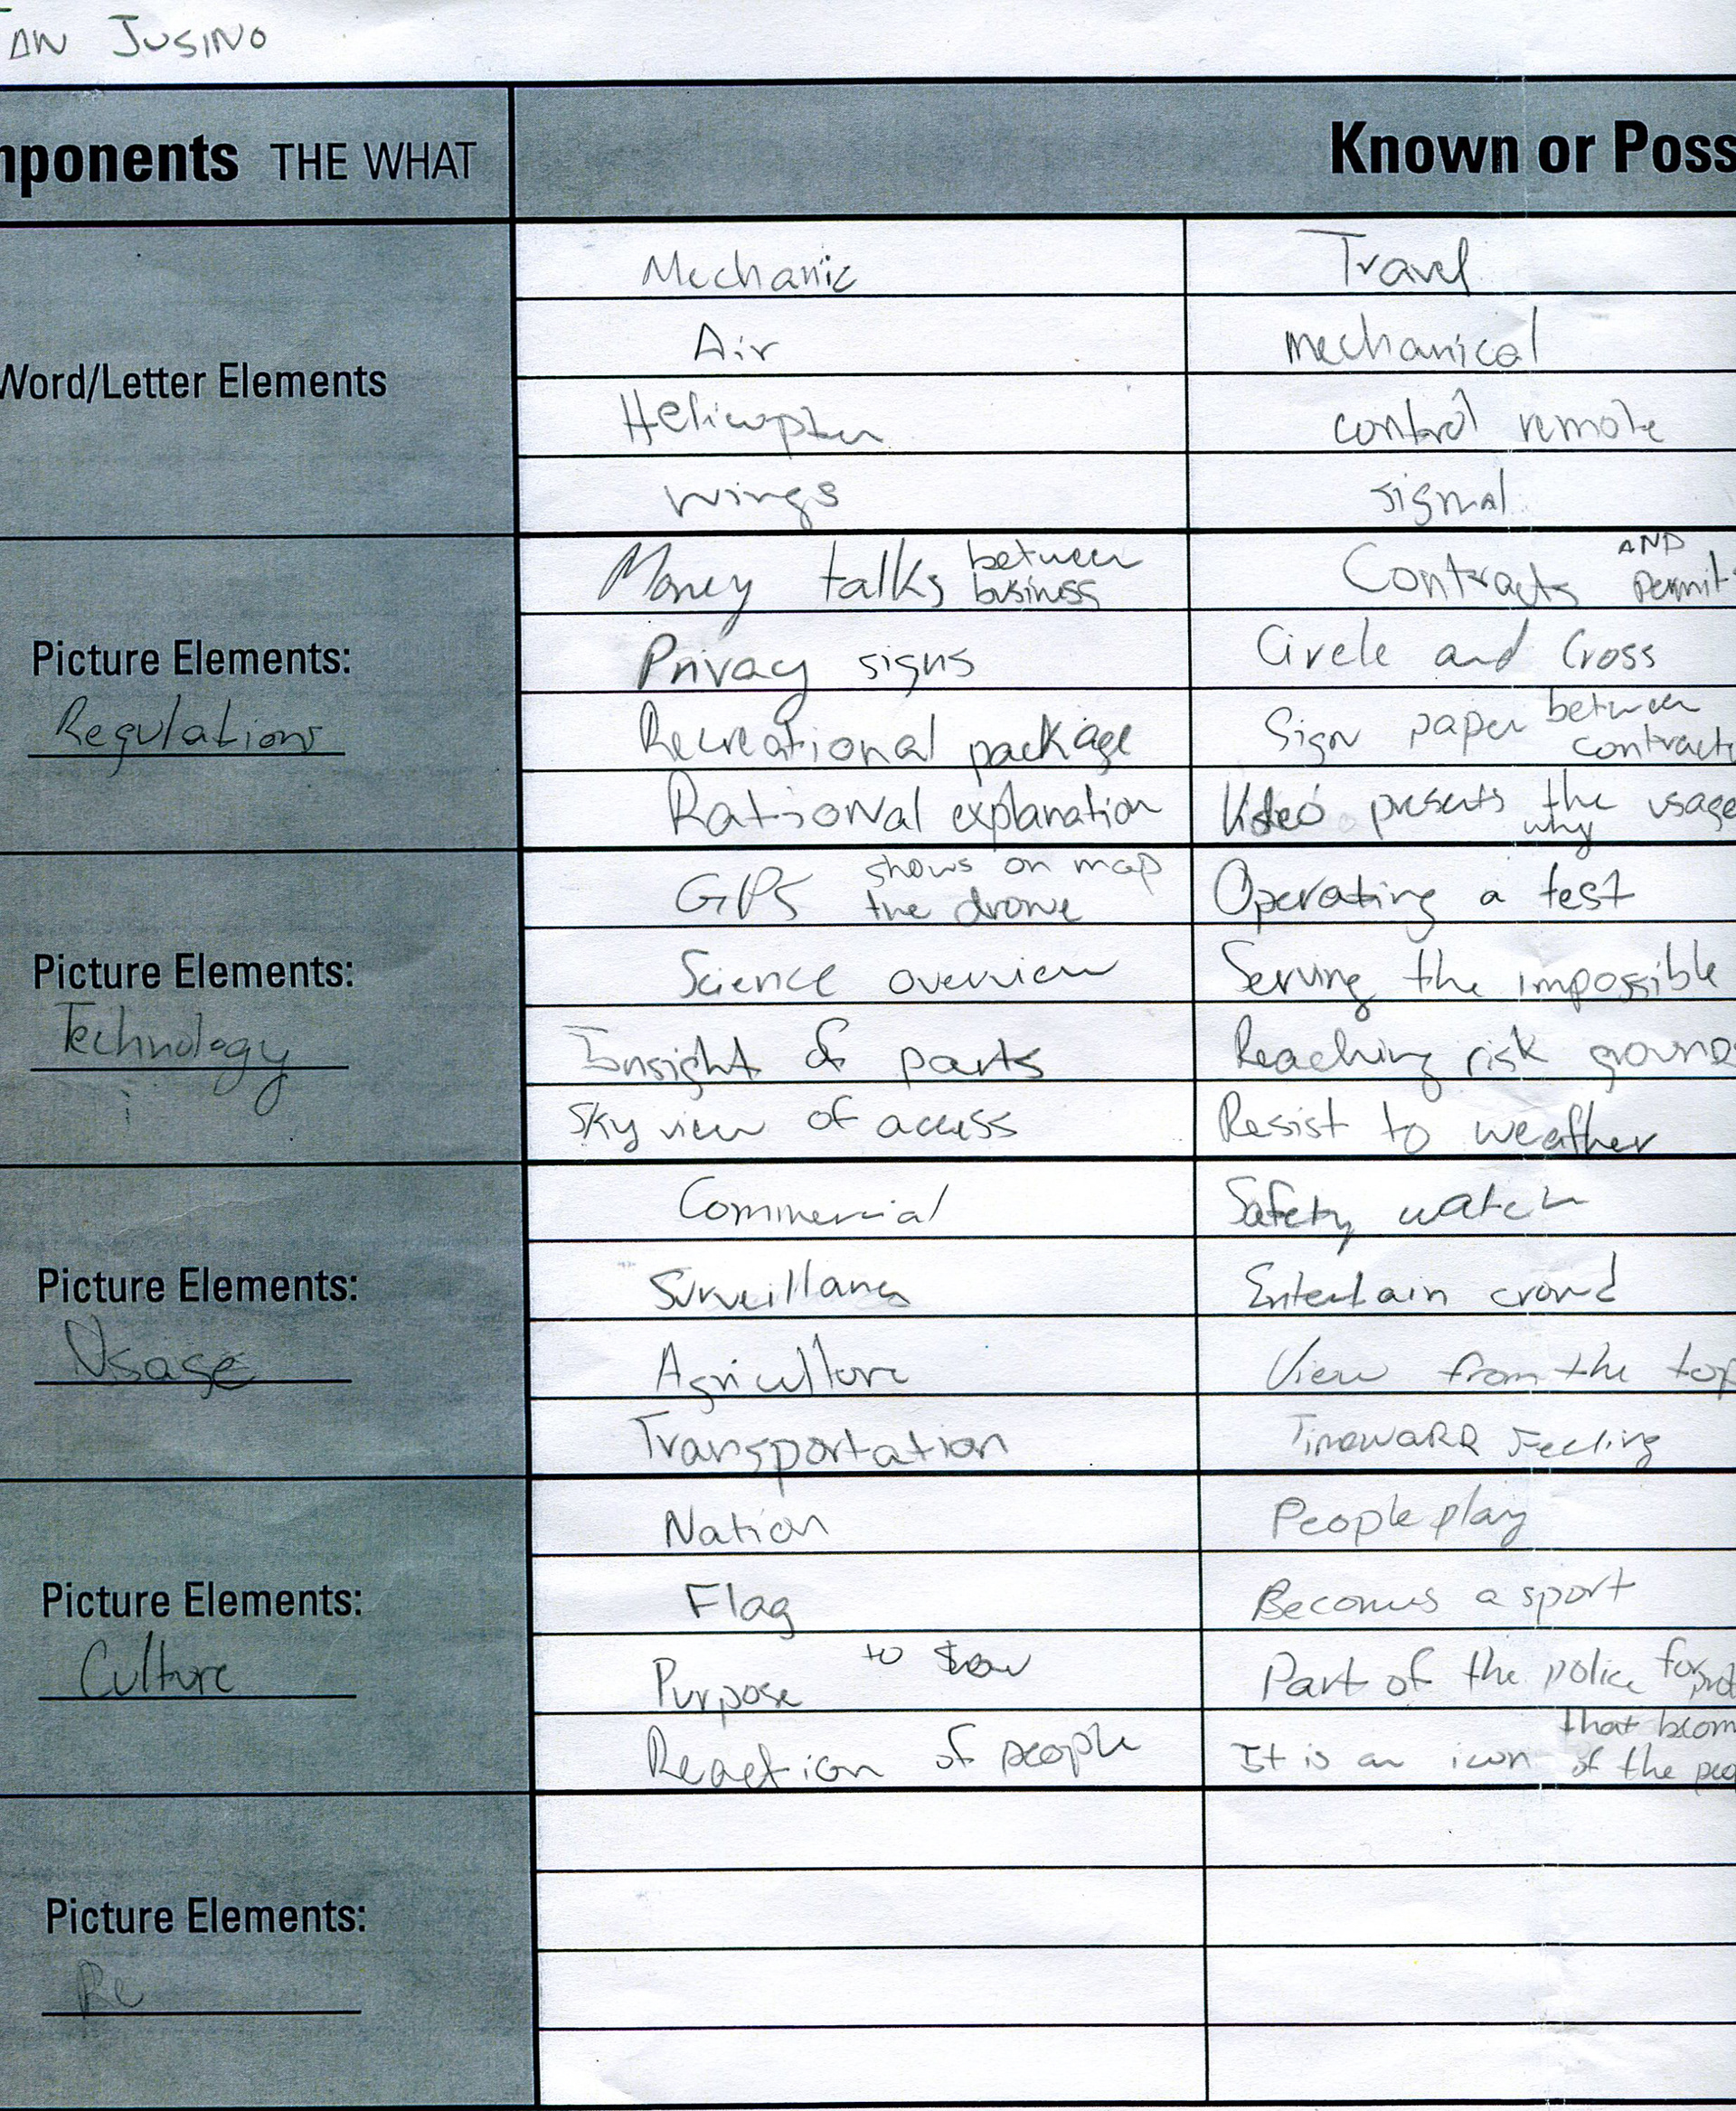 AN JUSINO
mponents THE WHAT
Known or Poss
Mechanic Travel
Air mechanical
Word/Letter Elements
Helicopter control remote
Wings signal
Money talks between business Contracts AND permit
Picture Elements:
Privacy signs Circle and Cross
Regulations
Recreational package Sign paper between contract
Rational explanation Video presents the why usage
GPS shows on map the drone Operating a test
Picture Elements:
Science overview Serving the impossible
Technology
Insight of parts Reaching risk grounds
Sky view of access Resist to weather
Commercial Safety watch
Picture Elements:
Surveillance Entertain crowd
Usage
Agriculture View from the top
Transportation Feeling
Nation People play
Picture Elements:
Flag Becomes a sport
Culture
Purpose to Part of the police for
Reaction of people It is an icon that becom of the peo
Picture Elements:
Re